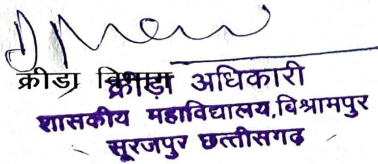 क्रीडा विभाग
क्रीड़ा अधिकारी
शासकीय महाविद्यालय,विश्रामपुर
सूरजपुर छत्तीसगढ़